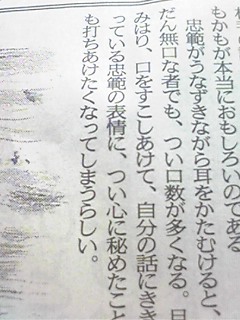 もかもが本当におもしろいのである
忠範がうなずきながら耳をかたむけると、
だん無口な者でも、つい口数が多くなる。目
みはり、口をすこしあけて、自分の話にきき
っている忠範の表情に、つい心に秘めたこと
も打ちあけたくなってしまうらしい。